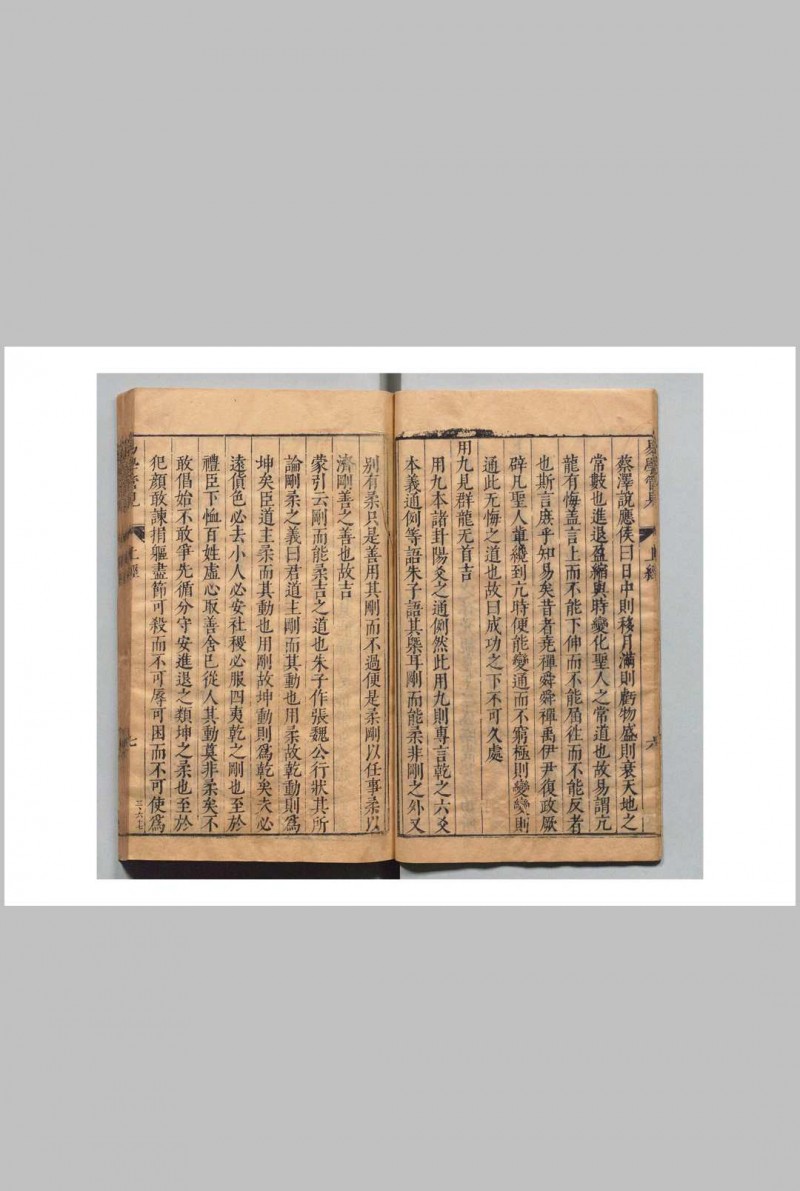 蔡澤說應侯曰日中則移月滿則虧物盛則衰天地之
常數也進退盈縮與時變化聖人之常道也故易謂亢
龍有悔盖言上而不能下伸而不能屈徃而不能反者
也斯言庶乎知易矣昔者堯禪舜舜禪禹伊尹復政厥
辟凡聖人輩纔到亢時便能變通而不窮極則變變則
通此无悔之道也故曰成功之下不可久處
用九見群龍无首吉
用九本諸卦陽爻之通例然此用九則專言乾之六爻
本義通例等語朱子語其槩耳剛而能柔非剛之外又
易學管見
上經
六
別有柔只是善用其剛而不過便是柔剛以任事柔以
濟剛善之善也故吉
蒙引云剛而能柔吉之道也朱子作張魏公行狀其所
論剛柔之義曰君道主剛而其動也用柔故乾動則爲
坤矣臣道主柔而其動也用剛故坤動則爲乾矣夫必
遠貨色必去小人必安社稷必服四夷乾之剛也至於
禮臣下恤百姓虛心取善舍己從人其動莫非柔矣不
敢倡始不敢爭先循分守安進退之類坤之柔也至於
犯顔敢諫捐軀盡節可殺而不可辱可困而不可使爲
易學管見
上經
七